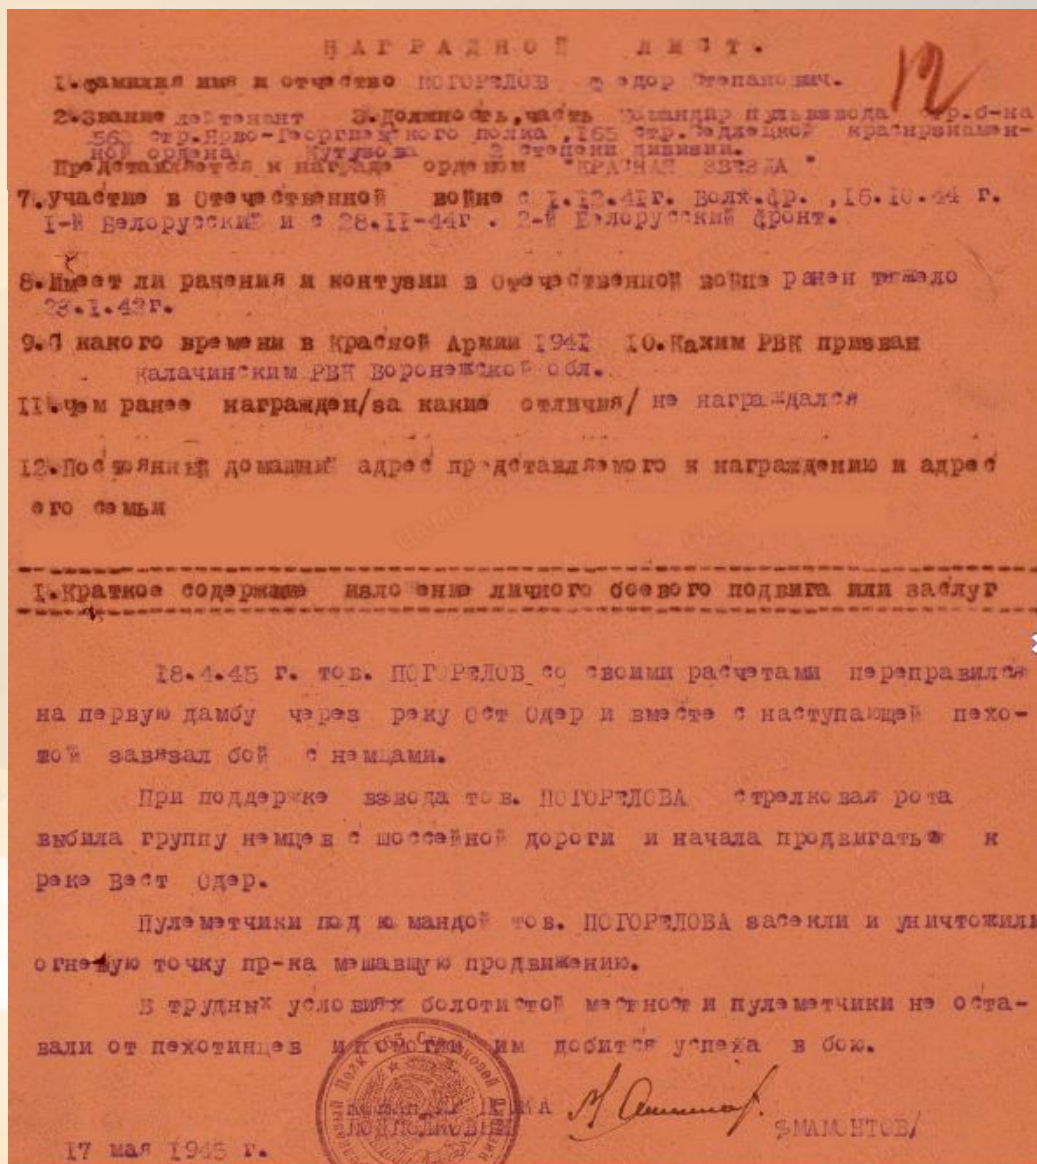 НАГРАДНОЙ ЛИСТ.
12
1. Фамилия имя и отчество ПОГОРЕЛОВ Федор Степанович.
2. Звание лейтенант 3. Должность, часть Командир пульвзвода стр.б-на
562 стр. полка, 165 стр. Седлецкой краснознамен-
ной ордена Кутузова 2 степени дивизии.
Представляется к награде орденом "КРАСНАЯ ЗВЕЗДА"
7. Участие в Отечественной войне с 1.12.41г. Волх.фр., 16.10.44 г.
1-й Белорусский и с 28.11-44г. 2-й Белорусский фронт.
8. Имеет ли ранения и контузии в Отечественной войне ранен тяжело
23.1.43г.
9. С какого времени в Красной Армии 1941 10. Каким РВК призван
Калачинским РВК Воронежской обл.
11. Чем ранее награжден/за какие отличия/ не награждался
12. Постоянный домашний адрес представляемого к награждению и адрес
его семьи
1. Краткое содержание изложение личного боевого подвига или заслуг
18.4.45 г. тов. ПОГОРЕЛОВ со своими расчетами переправился
на первую дамбу через реку Ост Одер и вместе с наступающей пехо-
той завязал бой с немцами.
При поддержке взвода тов. ПОГОРЕЛОВА стрелковая рота
выбила группу немцев с шоссейной дороги и начала продвигаться к
реке Вест Одер.
Пулеметчики под командой тов. ПОГОРЕЛОВА засекли и уничтожили
огневую точку пр-ка мешавшую продвижению.
В трудных условиях болотистой местности пулеметчики не оста-
вали от пехотинцев и помогли им добится успеха в бою.
КОМАНДИР ПОЛКА
ПОДПОЛКОВНИК
/МАМОНТОВ/
17 мая 1945 г.